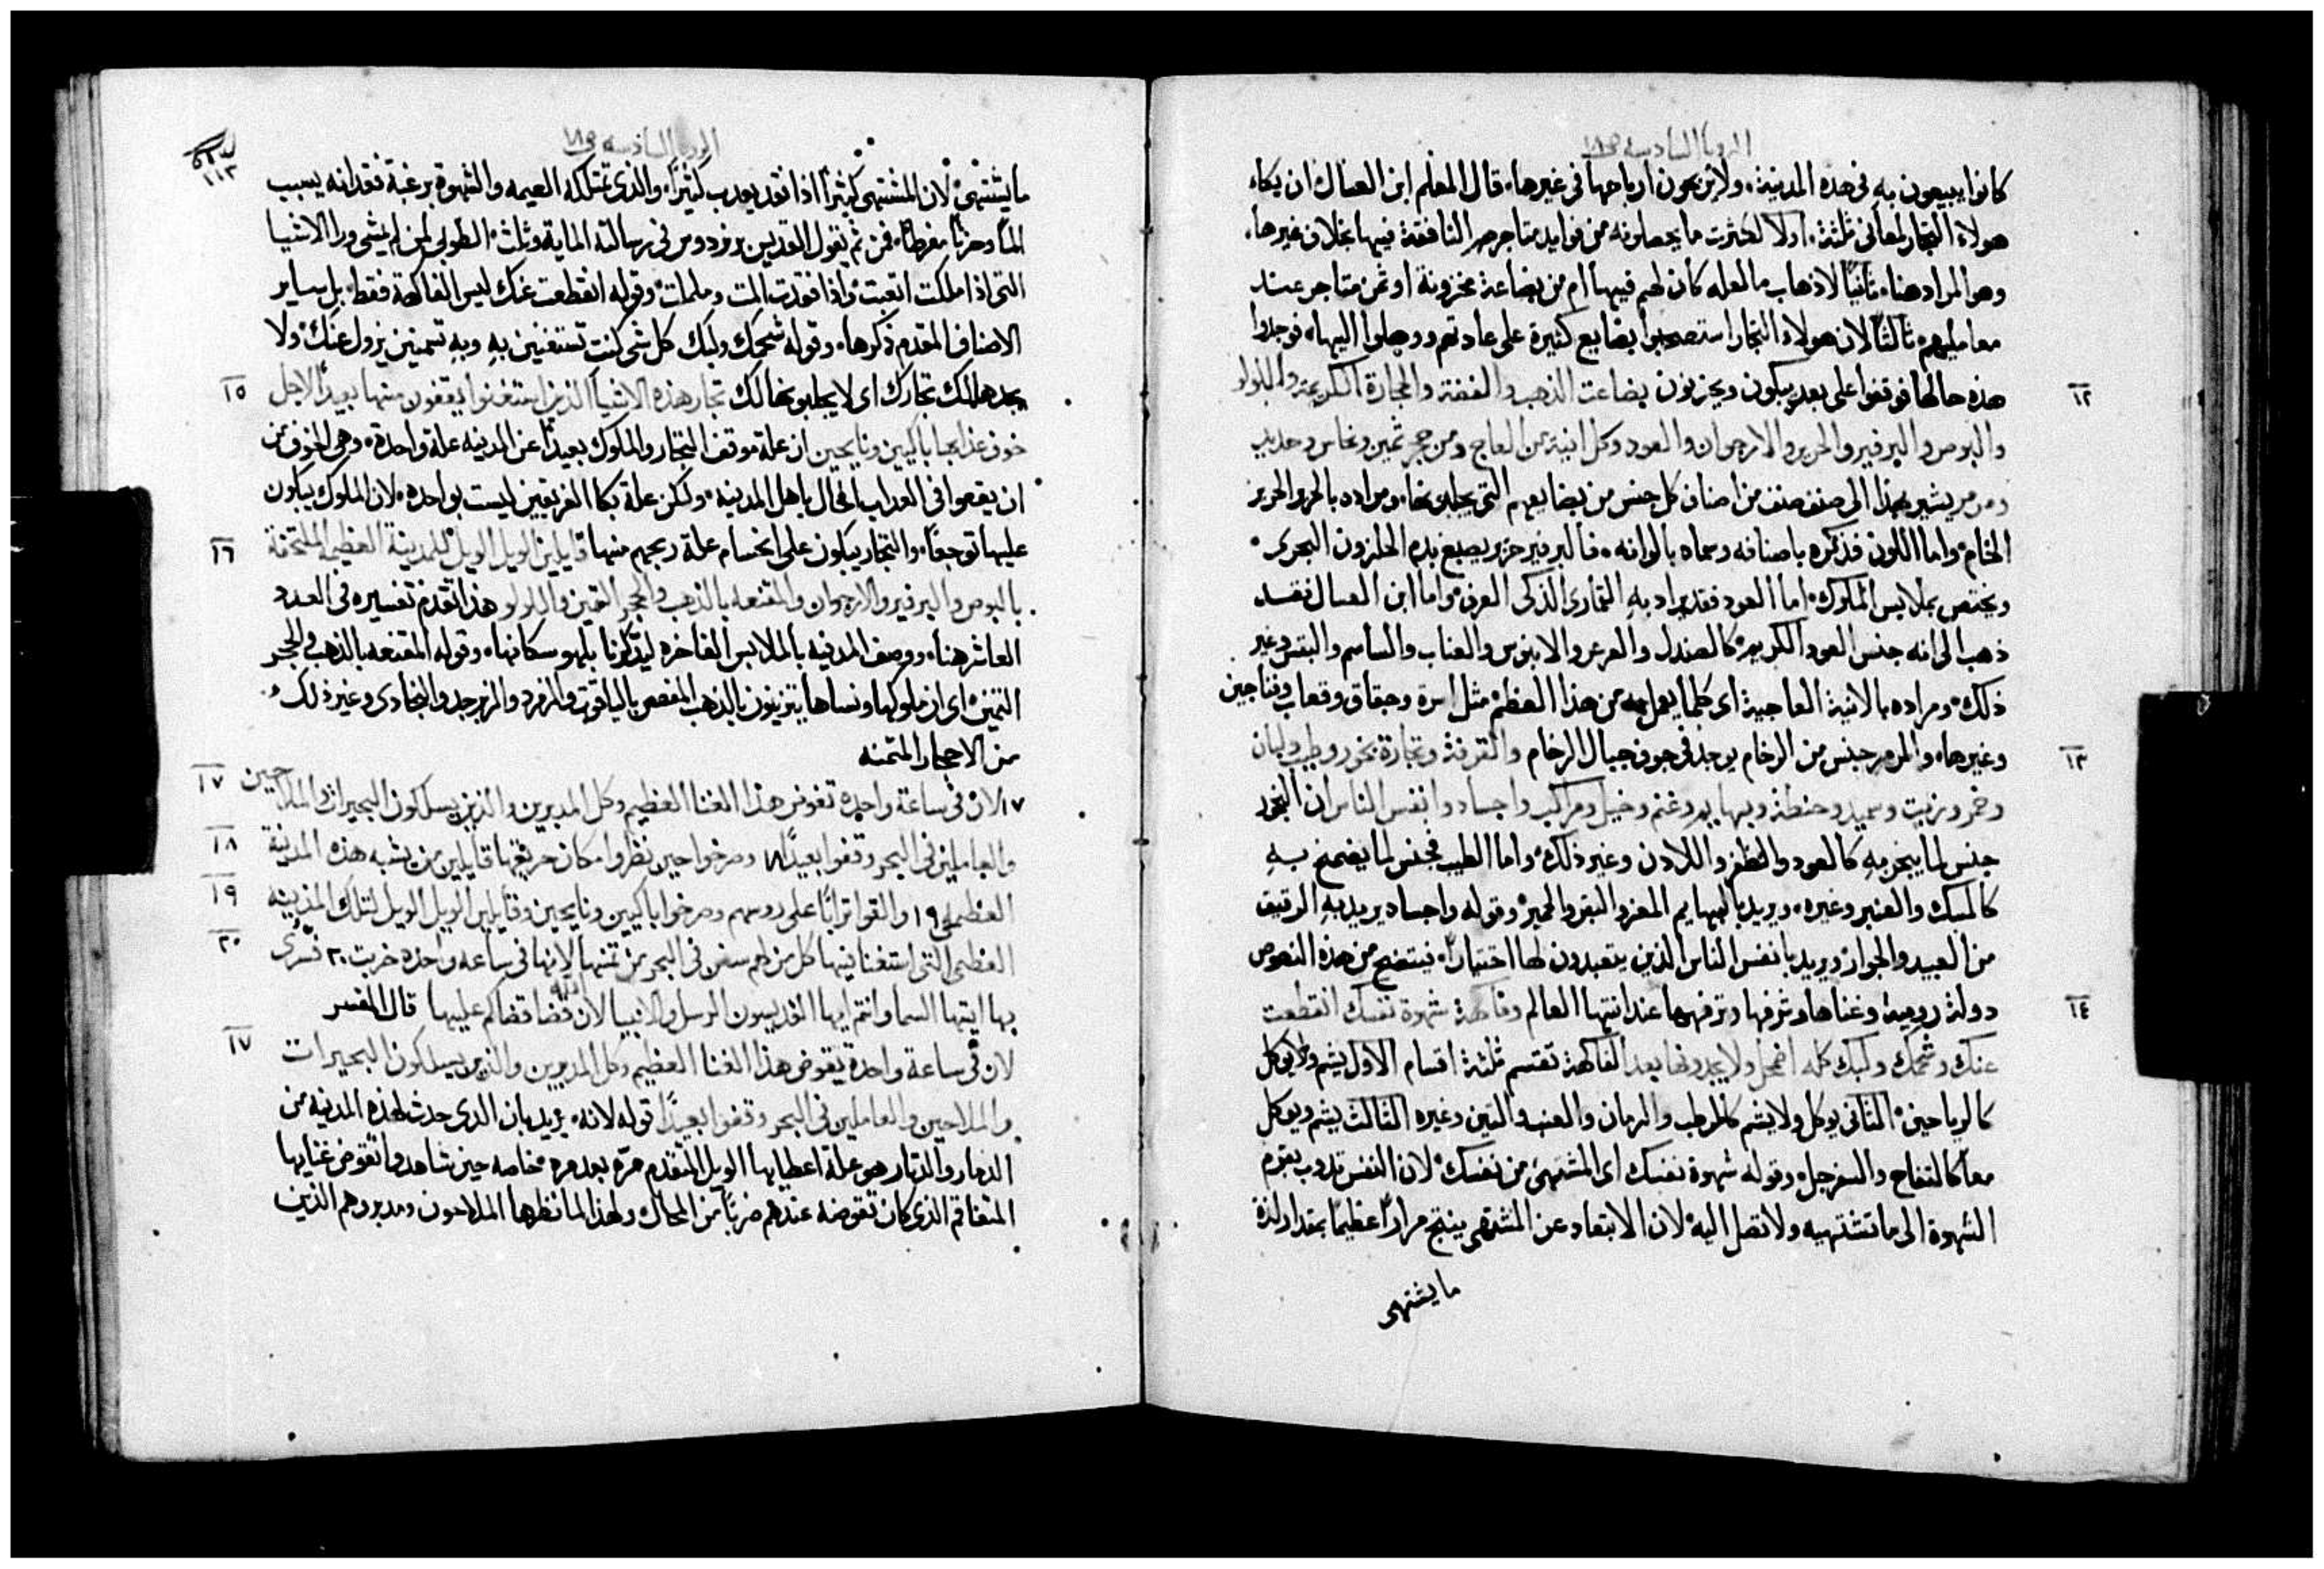 الرويا السادسه ص١٨
كانوا يبيعون به في هذه المدينة، ولا يربحون ارباحها في غيرها، قال المعلم ابن العسال ان بكاء
هولاء التجار لمعاني ثلثة، اولا لكثرت ما يحصلونه من فوايد متاجرهم النافقة فيها بخلاف غيرها،
وهو المراد هنا، ثانيا لاذهاب ما لعله كان لهم فيها ام من بضاعة مخزونة او ثمن متاجر عند
معامليهم، ثالثا لان هولاء التجار استصحبوا بضايع كثيرة على عادتهم ووصلوا اليها، فوجدوا
هذه حالها فوقفوا على بعد يبكون ويحزنون بضاعت الذهب والفضة والحجارة الكريمة واللولو
١٢
والبوص والبرفير والحرير والارجوان والعود وكل انية من العاج ومن حجر ثمين ونحاس وحديد
ومرمر يشير بهذا الى صنف صنف من اصناف كل جنس من بضايعهم التي يجلبونها، ومراده بالحرير الحرير
الخام، واما اللون فذكره باصنافه وسماه بالوانه، فالبرفير حرير يصبغ بدم الحلزون البحرى
ويختص بملابس الملوك، اما العود فقد يراد به القمارى الذكى العرف، واما ابن العسال فقد
ذهب الى انه جنس العود الكريم كالصندل والعرعر والابنوس والعناب والساسم والبقس وغير
ذلك، ومراده بالانية العاجية اى كلما يعمل من هذا العظم مثل اسرة وحقاق وقعاب وفناجين
وغيرها، والمرمر جنس من الرخام يوجد في جوف جبال الرخام والقرفة وتجارة بخور وطيب ولبان
١٣
وخمر وزيت وسميد وحنطة وبهايم وغنم وخيل ومراكب واجساد وانفس الناس ان البخور
جنس لما يبخر به كالعود والظفر واللادن وغير ذلك، واما الطيب فجنس لما يضمخ به
كالمسك والعنبر وغيره، ويريد بالبهايم المعز والبقر والحمير، وقوله واجساد يريد به الرقيق
من العبيد والجوار، ويريد بانفس الناس الذين يتعبدون لها اختيارا، فيتضح من هذه النصوص
دولة رومية وغناها وشرفها وترفهها عند انتها العالم وفاكهة شهوة نفسك انقطعت
١٤
عنك وشحمك ولبك كله اضمحل ولا يجدونها بعد الفاكهة تقتسم ثلثة اقسام الاول يشم ولا يوكل
كالرياحين، الثاني يوكل ولا يشم كالرطب والرمان والعنب والتين وغيره الثالث يشم ويوكل
معا كالتفاح والسفرجل، وقوله شهوة نفسك اى المشتهى من نفسك، لان النفس تدوب بعزم
الشهوة الى ما تشتهيه ولا تصل اليه، لان الابتعاد عن المشتهى ينتج مرارا عظيما بمقدار لذة
ما يشتهى
الرويا السادسه ص١٨
١١٣
ما يشتهى، لان المشتهى كثيرا اذا نقد يعدب كثيرا، والذى تمتلكه العيمه والشهوة برغبة فقدانه يسبب
الما وحزنا مفرطا، فمن ثم يقول القديس برنردوس في رسالته الماية وثلث، الطوبى لمن لم يمشى ورا الاشيا
التى اذا ملكت اتعبت، واذا فقدت المت وملمات، وقوله انقطعت عنك ليس الفاكهة فقط، بل ساير
الاصناف المتقدم ذكرها، وقوله شحمك ولبك كل شى كنت تستغنين به وبه تسمنين يزول عنك، ولا
يجدها لك تجارك اى لا يجلبونها لك تجار هذه الاشيا الذين استغنوا يقفون منها بعيدا لاجل
١٥
خوف عذابها باكيين ونايحين ان علة موقف التجار والملوك بعيدا عن المدينه علة واحدة، وهى الخوف من
ان يقعوا في العداب الحال باهل المدينه، ولكن علة بكا الفريقين ليست بواحده، لان الملوك يبكون
عليها توجعا، والتجار يبكون على انحسام علة ربحهم منها قايلين الويل الويل للمدينة العظيمه الملتحفة
١٦
بالبوص والبرفير والارجوان والمقنعه بالذهب والحجر الثمين واللولو هذا تقدم تفسيره في العدد
العاشر هنا، ووصف المدينه بالملابس الفاخره ليذكرنا بلهو سكانها، وقوله المقنعه بالذهب والحجر
الثمين، اى ان ملوكها ونساها يتزينون بالذهب المفصص بالياقوت والزمرد والزبرجد والبجادى وغير ذلك
من الاحجار المثمنه
١٧ لان في ساعة واحده تقوض هذا الغنا العظيم وكل المدبرين والذين يسلكون البحيرات والملاحين
١٧
والعاملين في البحر وقفوا بعيدا ١٨ وصرخوا حين نظروا مكان حريقها قايلين من يشبه هذه المدينة
١٨
العظمى ١٩ والقوا ترابا على روسهم وصرخوا باكيين ونايحين وقايلين الويل الويل لتلك المدينه
١٩
العظمى التى استغنا فيها كل من لهم سفن في البحر من ثمنها لانها في ساعه واحده خربت ٢٠ تسرى
٢٠
بها ايتها السما وانتم ايها القديسون الرسل والانبيا لان الله قضا قضاكم عليها قال المفسر
لان في ساعة واحدة يقوض هذا الغنا العظيم وكل المدبرين والذين يسلكون البحيرات
١٧
والملاحين والعاملين في البحر وقفوا بعيدا قوله لانه، يريد بان الذى حدث لهذه المدينه من
الدمار والتبار هو علة اعطايها الويل المتقدم مره بعد مره، خاصه حين شاهدوا تقوض غنايها
المتفاقم الذى كان تقوضه عندهم ضربا من المحال، ولهذا لما نظرها الملاحون ومدبروهم الذين